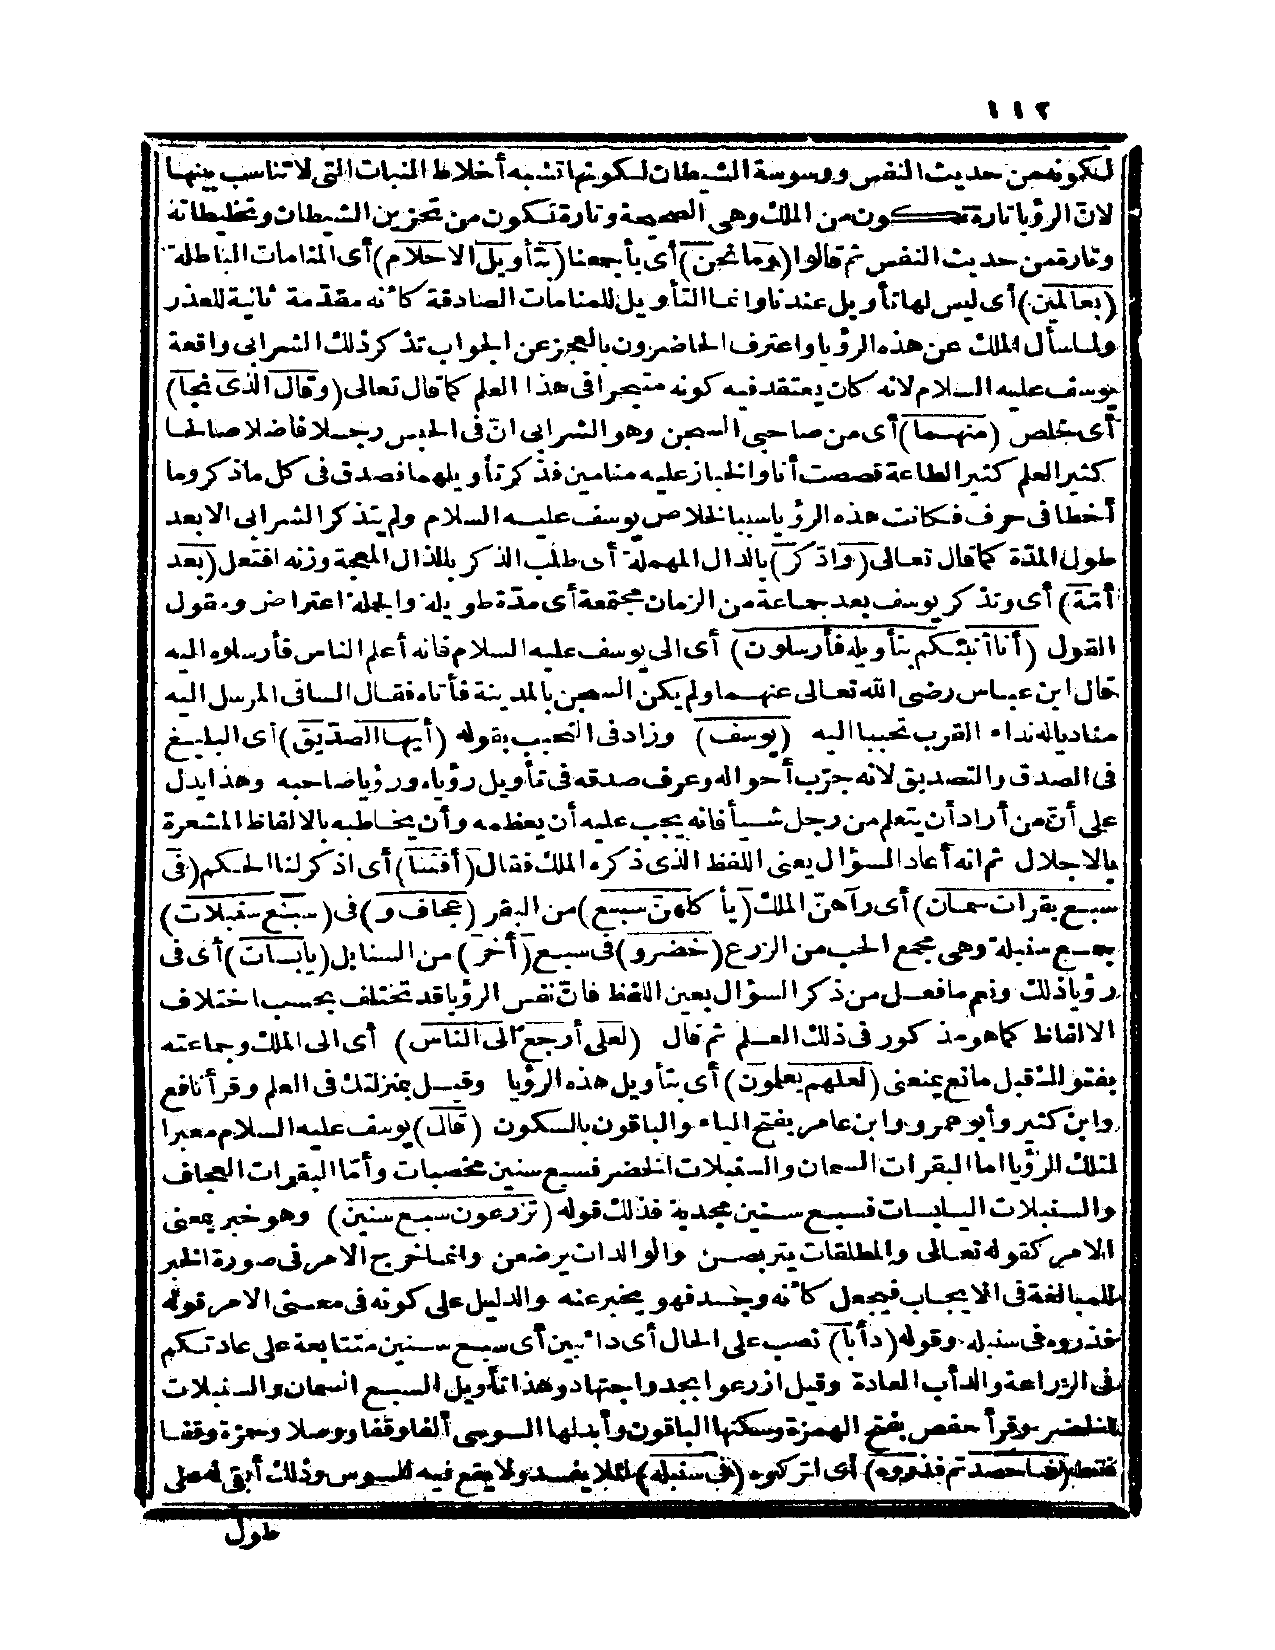 ١١٢
لكونه من حديث النفس ووسوسة الشيطان لكونها تشبه أخلاط النبات التى لا تناسب بينها
لانّ الرؤيا تارة تكون من الملك وهى الصحيحة وتارة تكون من تحزين الشيطان وتخليطاته
وتارة من حديث النفس ثم قالوا (وما نحن) أى بأجمعنا (بتأويل الاحلام) أى المنامات الباطلة
(بعالمين) أى ليس لها تأويل عندنا وانما التأويل للمنامات الصادقة كانه مقدمة ثانية للعذر
ولما سأل الملك عن هذه الرؤيا واعترف الحاضرون بالعجز عن الجواب تذكر ذلك الشرابى واقعة
يوسف عليه السلام لانه كان يعتقد فيه كونه متبحرا فى هذا العلم كما قال تعالى (وقال الذى نجا)
أى خلص (منهما) أى من صاحبى السجن وهو الشرابى انّ فى الحبس رجلا فاضلا صالحا
كثير العلم كثير الطاعة قصصت أنا والخباز عليه منامين فذكر تأويلهما فصدق فى كل ما ذكر وما
أخطا فى حرف فكانت هذه الرؤيا سببا لخلاص يوسف عليه السلام ولم يتذكر الشرابى الا بعد
طول المدّة كما قال تعالى (وادّكر) بالدال المهملة أى طلب الذكر بالذال المعجمة وزنه افتعل (بعد
أمّة) أى وتذكر يوسف بعد جماعة من الزمان مجتمعة أى مدّة طويلة والجملة اعتراض ومقول
القول (أنا أنبئكم بتأويله فأرسلون) أى الى يوسف عليه السلام فانه أعلم الناس فأرسلوه اليه
قال ابن عباس رضى الله تعالى عنهما ولم يكن السجن بالمدينة فأتاه فقال الساقى المرسل اليه
مناديا له نداء القرب تحببا اليه (يوسف) وزاد فى التحبب بقوله (أيها الصدّيق) أى البليغ
فى الصدق والتصديق لانه جرّب أحواله وعرف صدقه فى تأويل رؤياه ورؤيا صاحبه وهذا يدل
على أنّ من أراد أن يتعلم من رجل شيأ فانه يجب عليه أن يعظمه وأن يخاطبه بالالفاظ المشعرة
بالاجلال ثم انه أعاد السؤال بعين اللفظ الذى ذكره الملك فقال (أفتنا) أى اذكر لنا الحكم (فى
سبع بقرات سمان) أى رآهنّ الملك (يأكلهنّ سبع) من البقر (عجاف و) فى (سبع سنبلات)
جمع سنبلة وهى مجمع الحب من الزرع (خضر و) فى سبع (أخر) من السنابل (يابسات) أى فى
رؤيا ذلك ونعم ما فعل من ذكر السؤال بعين اللفظ فانّ نفس الرؤيا قد تختلف بحسب اختلاف
الالفاظ كما هو مذكور فى ذلك العلم ثم قال (لعلى أرجع الى الناس) أى الى الملك وجماعته
بفتواك قبل مانع يمنعنى (لعلهم يعلمون) أى بتأويل هذه الرؤيا وقيل بمنزلتك فى العلم وقرأ نافع
وابن كثير وأبو عمرو وابن عامر بفتح الياء والباقون بالسكون (قال) يوسف عليه السلام معبرا
لتلك الرؤيا اما البقرات السمان والسنبلات الخضر فسبع سنين مخصبات وأمّا البقرات العجاف
والسنبلات اليابسات فسبع سنين مجدبة فذلك قوله (تزرعون سبع سنين) وهو خبر بمعنى
الامر كقوله تعالى والمطلقات يتربصن والوالدات يرضعن وانما خرج الامر فى صورة الخبر
للمبالغة فى الايجاب فيجعل كانه وجد فهو يخبر عنه والدليل على كونه فى معنى الامر قوله
فذروه فى سنبله وقوله (دأبا) نصب على الحال أى دائبين أى سبع سنين متتابعة على عادتكم
فى الزراعة والدأب العادة وقيل ازرعوا بجد واجتهاد وهذا تأويل السبع السمان والسنبلات
الخضر وقرأ حفص بفتح الهمزة وسكنها الباقون وأبدلها السوسى ألفا وقفا ووصلا وحمزة وقفا
فقط (فما حصدتم فذروه) أى اتركوه (فى سنبله) لئلا يفسد ولا يقع فيه السوس وذلك أبقى له على
طول